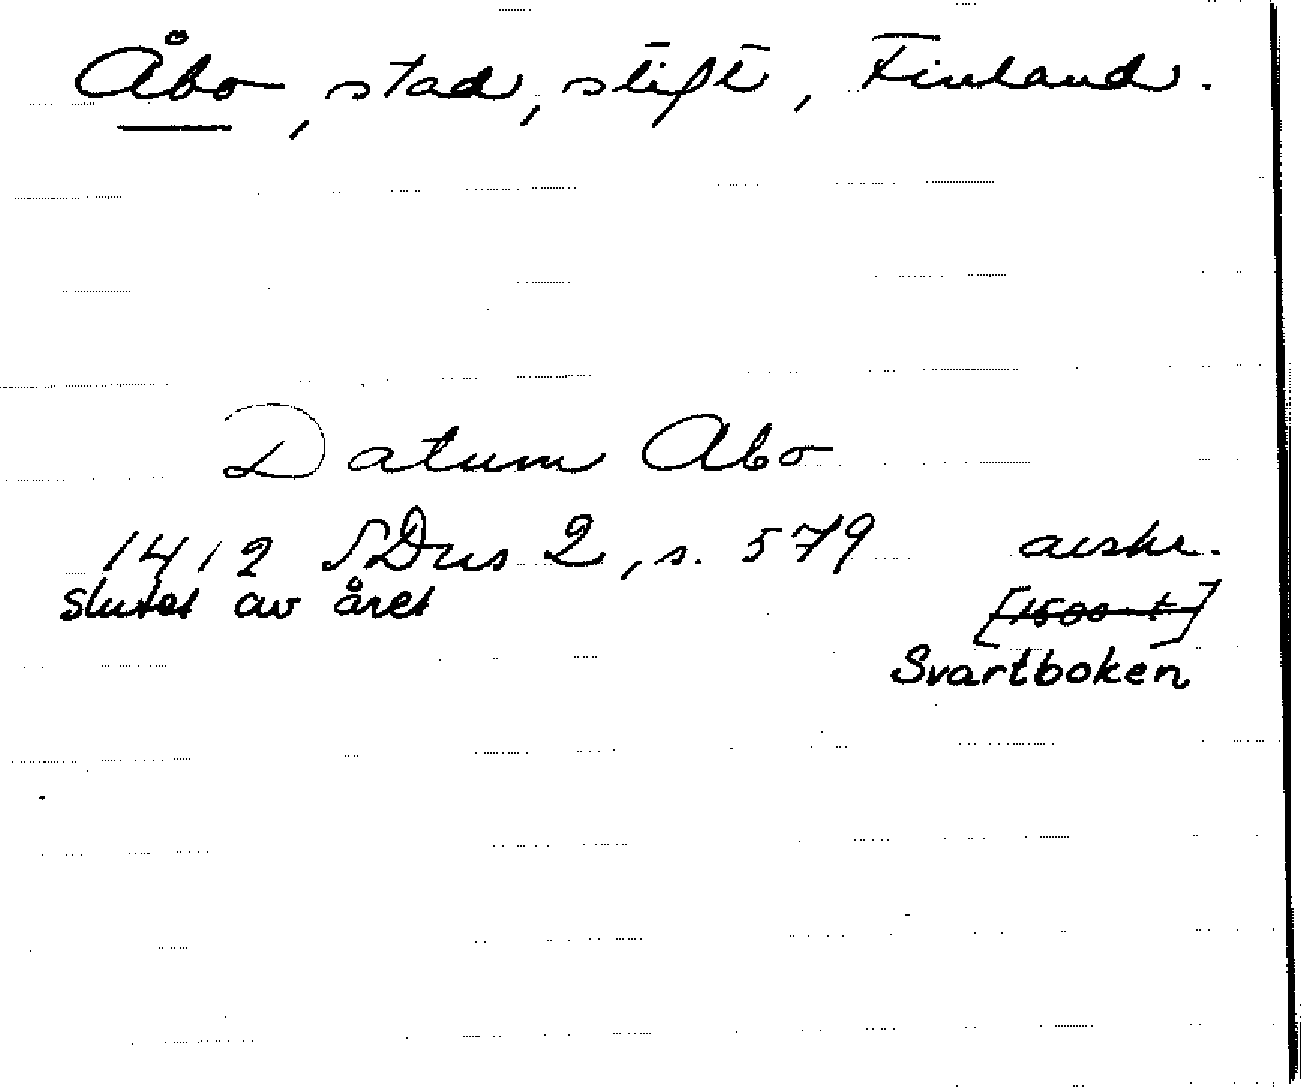 Åbo, stad, stift, Finland.
Datum Abo
1412 SDns 2, s. 579 avskr.
slutet av året [1500-t]
Svartboken